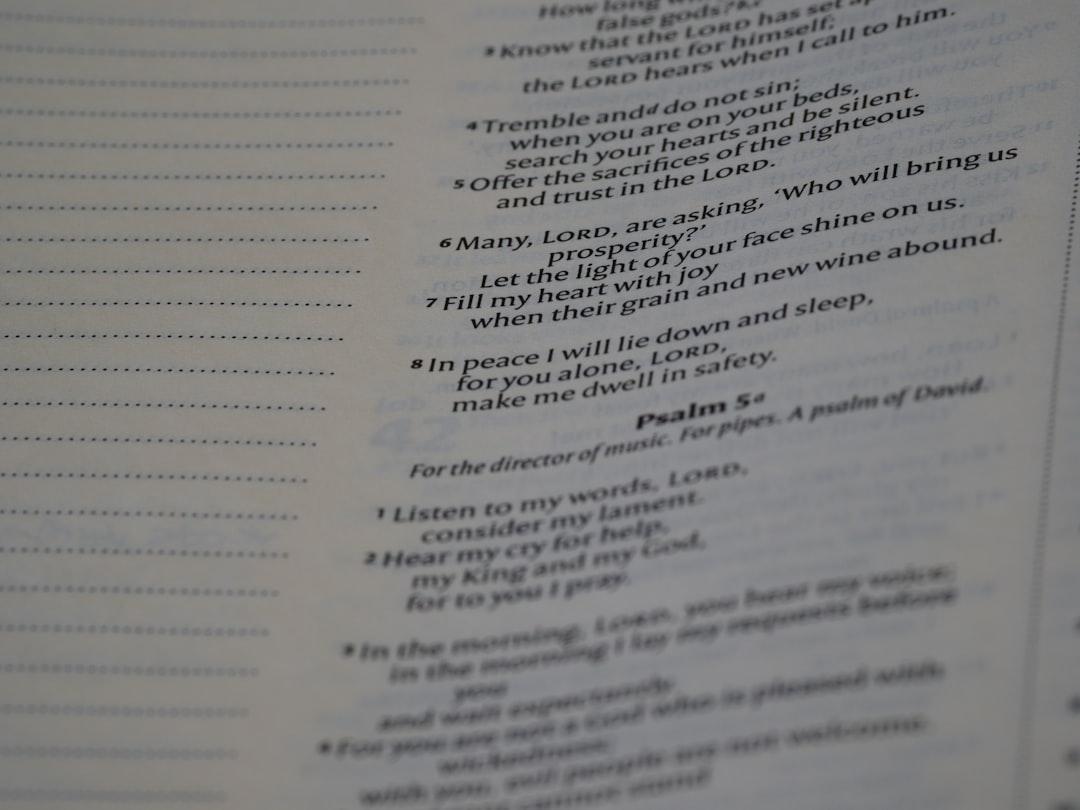 How long w
false gods?
3 Know that the LORD has set ap
servant for himself;
the LORD hears when I call to him.
4 Tremble and d do not sin;
when you are on your beds,
search your hearts and be silent.
5 Offer the sacrifices of the righteous
and trust in the LORD.
6 Many, LORD, are asking, ‘Who will bring us
prosperity?’
Let the light of your face shine on us.
7 Fill my heart with joy
when their grain and new wine abound.
8 In peace I will lie down and sleep,
for you alone, LORD,
make me dwell in safety.
Psalm 5 a
For the director of music. For pipes. A psalm of David.
1 Listen to my words, LORD,
consider my lament.
2 Hear my cry for help,
my King and my God,
for to you I pray.
3 In the morning, LORD, you hear my voice;
in the morning I lay my requests before
you
and wait expectantly.
4 For you are not a God who is pleased with
wickedness;
with you, evil people are not welcome.